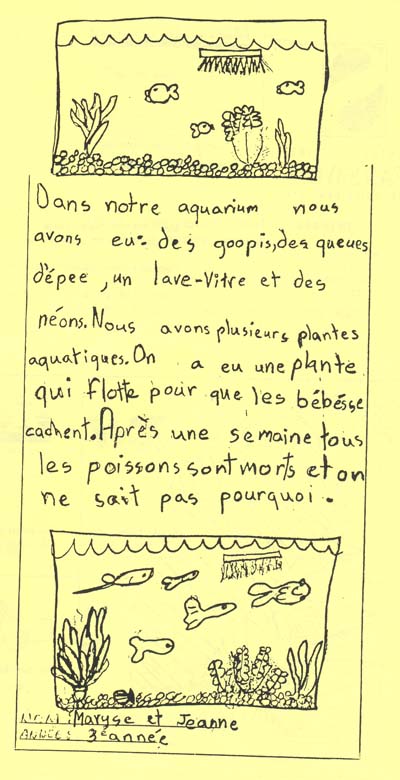 Dans notre aquarium nous
avons eu: des goopis, des queues
d'épee, un lave-vitre et des
néons. Nous avons plusieurs plantes
aquatiques. On a eu une plante
qui flotte pour que les bébésse
cachent. Après une semaine tous
les poissons sont morts et on
ne sait pas pourquoi.
NOM: Maryse et Jeanne
ANNÉE: 3e année